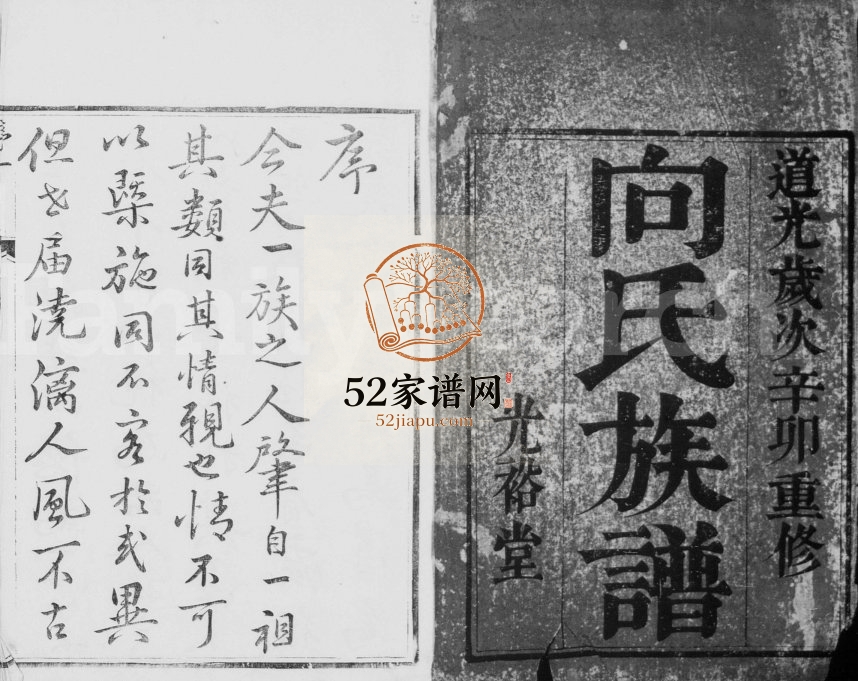 道光歲次辛卯重修
向氏族譜
光裕堂
序
今夫一族之人肇自一祖
其類同其情親也情不可
以槩施同不容扵或異
但世届澆漓人風不古
52家谱网
52jiapu.com